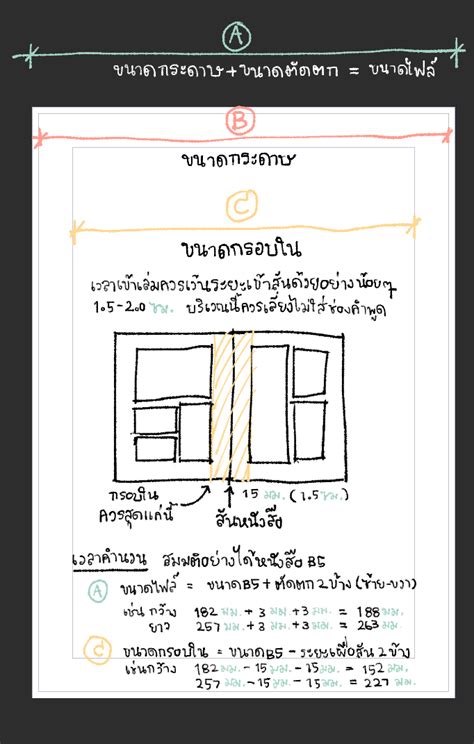 A
ขนาดกระดาษ+ขนาดตัดตก = ขนาดไฟล์
B
ขนาดกระดาษ
C
ขนาดกรอบใน
เวลาเข้าเล่มควรเว้นระยะเข้าสันด้วยอย่างน้อยๆ
1.5-2.0 ซม. บริเวณนี้ควรเลี่ยงไม่ใส่ช่องคำพูด
กรอบใน
ควรสุดแค่นี้
15 มม. (1.5 ซม.)
สันหนังสือ
เวลาคำนวน สมมติอย่างได้หนังสือ B5
A ขนาดไฟล์ = ขนาดB5 + ตัดตก 2 ข้าง (ซ้าย-ขวา)
เช่น กว้าง 182 มม. + 3 มม. + 3 มม. = 188 มม.
ยาว 257 มม. + 3 มม. + 3 มม. = 263 มม.
C ขนาดกรอบใน = ขนาดB5 - ระยะเผื่อสัน 2 ข้าง
เช่นกว้าง 182 มม. - 15 มม. - 15 มม. = 152 มม.
257 มม. - 15 มม. - 15 มม. = 227 มม.